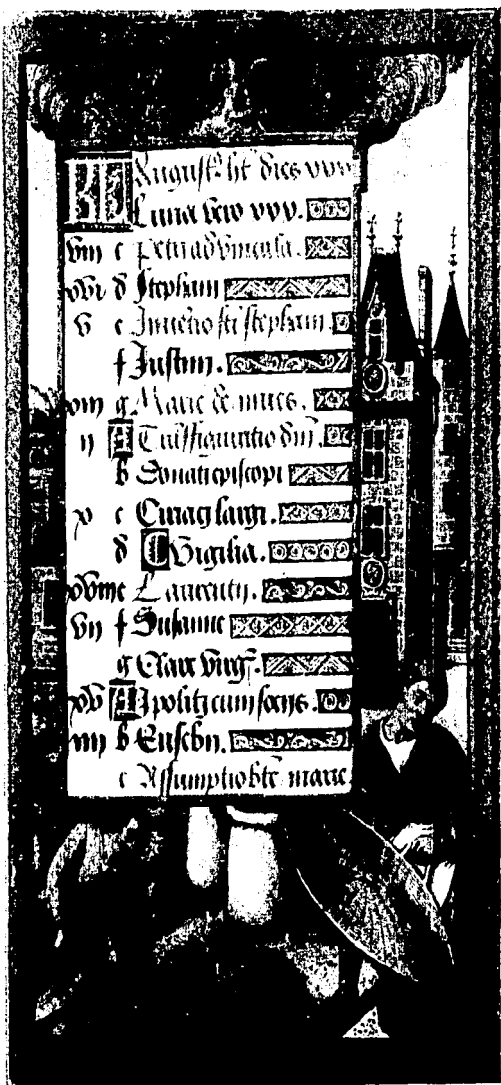 KL Augustus ht dies xxxi
Luna vero xxx.
viii c Petri ad vincula.
xvi d Stephani
v e Inuetio sti stephani
f Justini.
xiii g Marie de niues.
ii A Trassfiguratio dni.
b Donati episcopi
x c Ciriaci largi.
d Vigilia.
xviii e Laurentii.
vii f Susanne
g Clare virgs.
xv A Ipoliti cum sociis.
iiii b Eusebii.
c Assumptio bte marie.